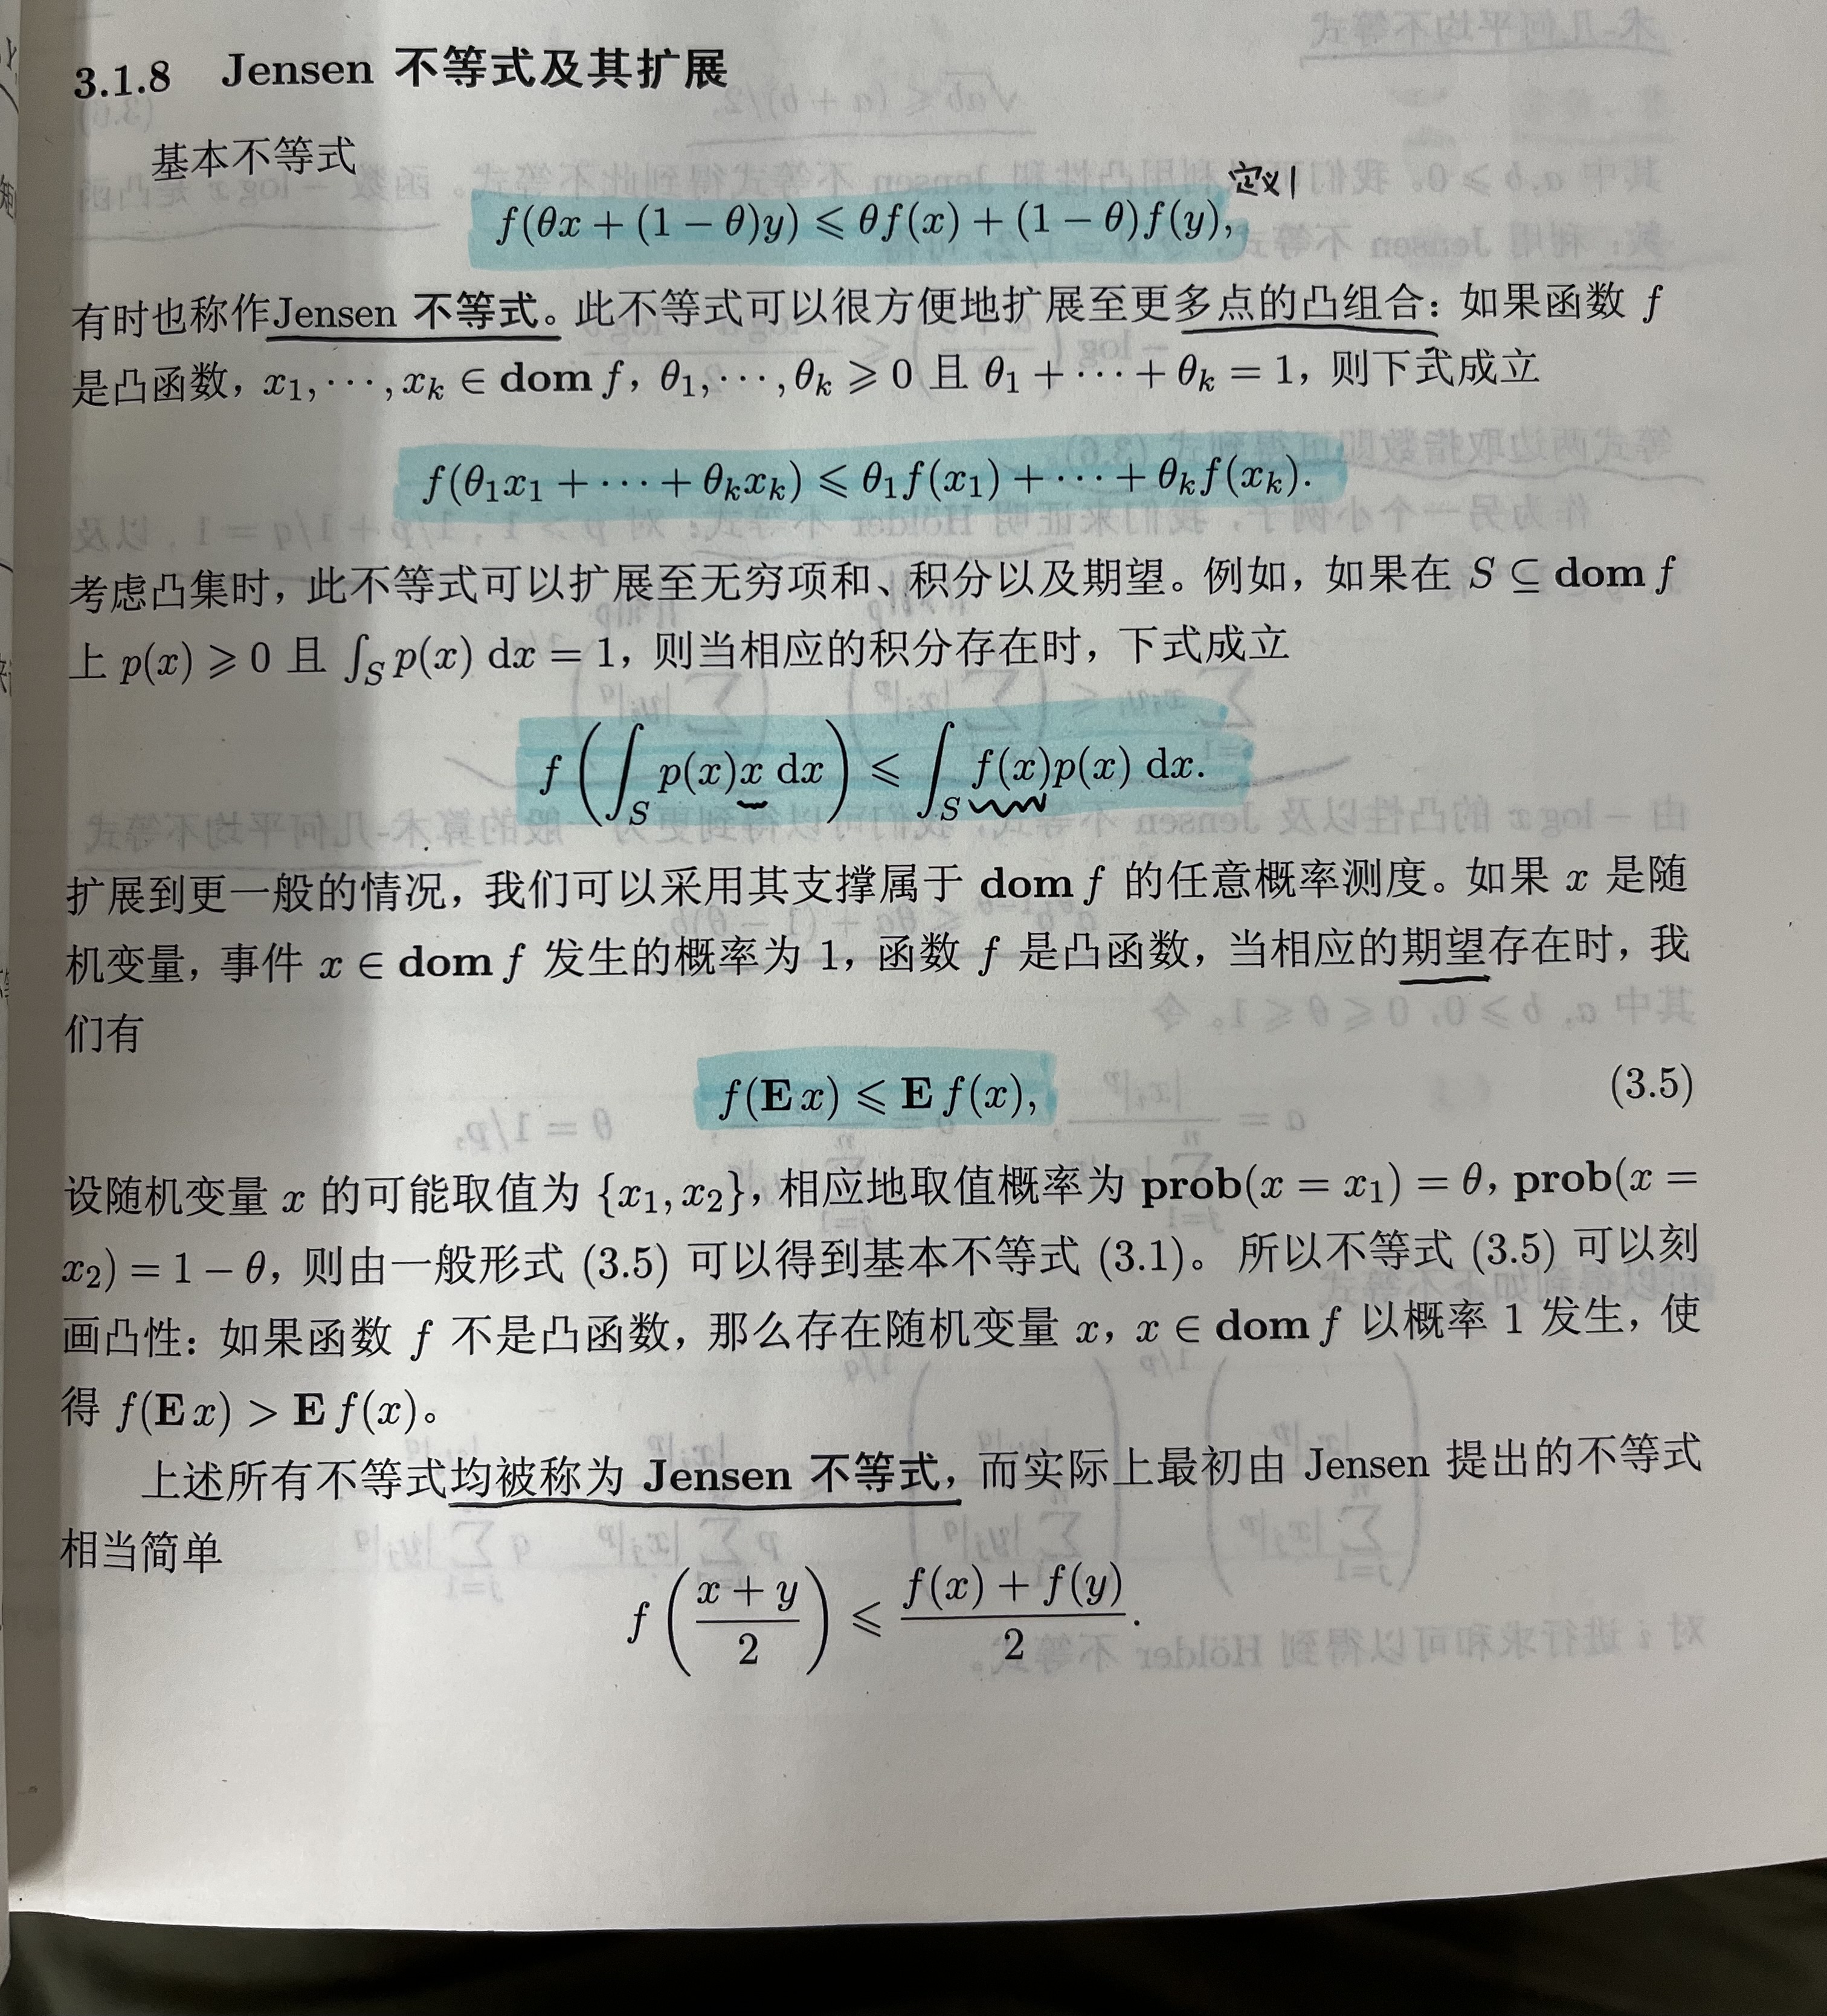 3.1.8 Jensen 不等式及其扩展
基本不等式
定义1
f(θx + (1 − θ)y) ⩽ θf(x) + (1 − θ)f(y),
有时也称作Jensen 不等式。此不等式可以很方便地扩展至更多点的凸组合：如果函数 f
是凸函数，x₁, ⋯ , xₖ ∈ dom f，θ₁, ⋯ , θₖ ⩾ 0 且 θ₁ + ⋯ + θₖ = 1，则下式成立
f(θ₁x₁ + ⋯ + θₖxₖ) ⩽ θ₁f(x₁) + ⋯ + θₖf(xₖ).
考虑凸集时，此不等式可以扩展至无穷项和、积分以及期望。例如，如果在 S ⊆ dom f
上 p(x) ⩾ 0 且 ∫_S p(x) dx = 1，则当相应的积分存在时，下式成立
f (∫_S p(x)x dx) ⩽ ∫_S f(x)p(x) dx.
扩展到更一般的情况，我们可以采用其支撑属于 dom f 的任意概率测度。如果 x 是随
机变量，事件 x ∈ dom f 发生的概率为 1，函数 f 是凸函数，当相应的期望存在时，我
们有
f(E x) ⩽ E f(x), (3.5)
设随机变量 x 的可能取值为 {x₁, x₂}，相应地取值概率为 prob(x = x₁) = θ，prob(x =
x₂) = 1 − θ，则由一般形式 (3.5) 可以得到基本不等式 (3.1)。所以不等式 (3.5) 可以刻
画凸性：如果函数 f 不是凸函数，那么存在随机变量 x，x ∈ dom f 以概率 1 发生，使
得 f(E x) > E f(x)。
上述所有不等式均被称为 Jensen 不等式，而实际上最初由 Jensen 提出的不等式
相当简单
f ((x + y)/2) ⩽ (f(x) + f(y))/2.